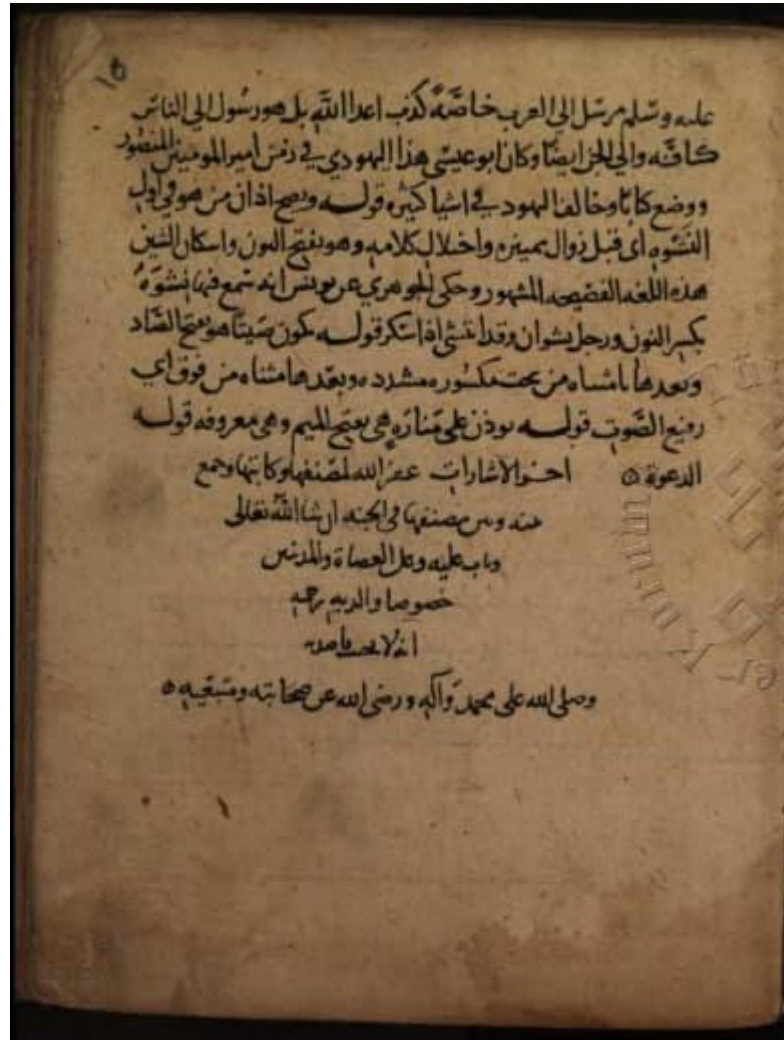 ١٥
عليه وسلم مرسل الي العرب خاصَّةً كذب اعدا الله بل هو رسُول الي الناس
كافَّه والي الجن ايضًا وكان ابو عيسَى هذا اليهودي في زمن امير المومنين المنصُور
ووضع كتابًا وخالف اليهود في اشيا كثيره قولـــه ويصح اذان من هو في اول
النَشْوه اى قبل زوال تمييزه واختلال كلامه وهو بفتح النون واسكان الشين
هذه اللغه الفصيحه المشهور وحكى الجوهري عن يونس انه سمع فيها نِشوَهُ
بكسر النون ورجل نشوان وقد انتشى اذا سَكر قولـــه يكون صَيتًا هو بفتح الصَّاد
وبعدها يا مثناه من تحت مكسُوره مشدده وبعدها مثناه من فوق اي
رفيع الصَّوت قولـــه يوذن على مَنارَه هي بفتح الميم وهي معروفه قولـــه
الدعوة ۞ اخر الاشارات غفر الله لمصَنفها وكاتبها وجمع
بينه وبين مصنفها في الجنه ان شا اللهُ تعالى
وتاب عليه وعلى العصاة والمدنبين
خصوصا والديه
انه
وصلى الله على محمد وآله ورضى الله عن صحابته ومتبعيه ۞